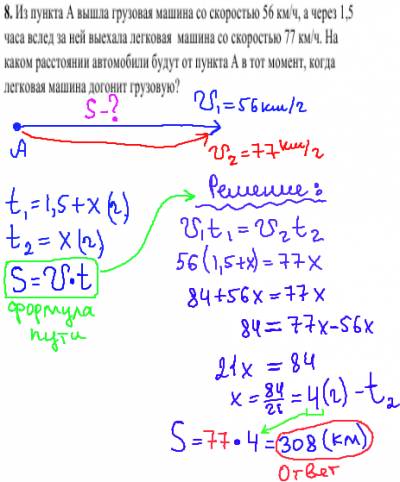 8. Из пункта А вышла грузовая машина со скоростью 56 км/ч, а через 1,5
часа вслед за ней выехала легковая машина со скоростью 77 км/ч. На
каком расстоянии автомобили будут от пункта А в тот момент, когда
легковая машина догонит грузовую?
S-?
V₁=56км/ч
A
V₂=77км/ч
t₁=1,5+x(ч)
t₂=x(ч)
S=V•t
формула
пути
Решение:
V₁t₁=V₂t₂
56(1,5+x)=77x
84+56x=77x
84=77x-56x
21x=84
x=84/21=4(ч)-t₂
S=77•4=308(км)
ответ